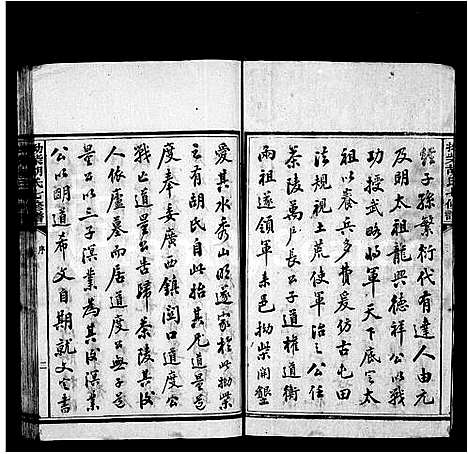 經子孫繁衍代有達人由元
及明太祖龍興德祥公以戰
功授武略將軍天下底定太
祖以養兵多費爰仿古屯田
法規視土荒使軍治之公任
茶陵萬戶長公子道權道衡
兩祖遂領軍來邑拗柴開墾
愛其水秀山明遂家於此拗柴
之有胡氏自此始其後道量公
度奉委廣西鎮閩口道度公
戰亡道量公告歸茶陵其後
人依廬墓而居道度公無子
量公以三子溟業為其後溟業
公以朗道希文自期就文定書
拗柴胡氏七修譜
序
二